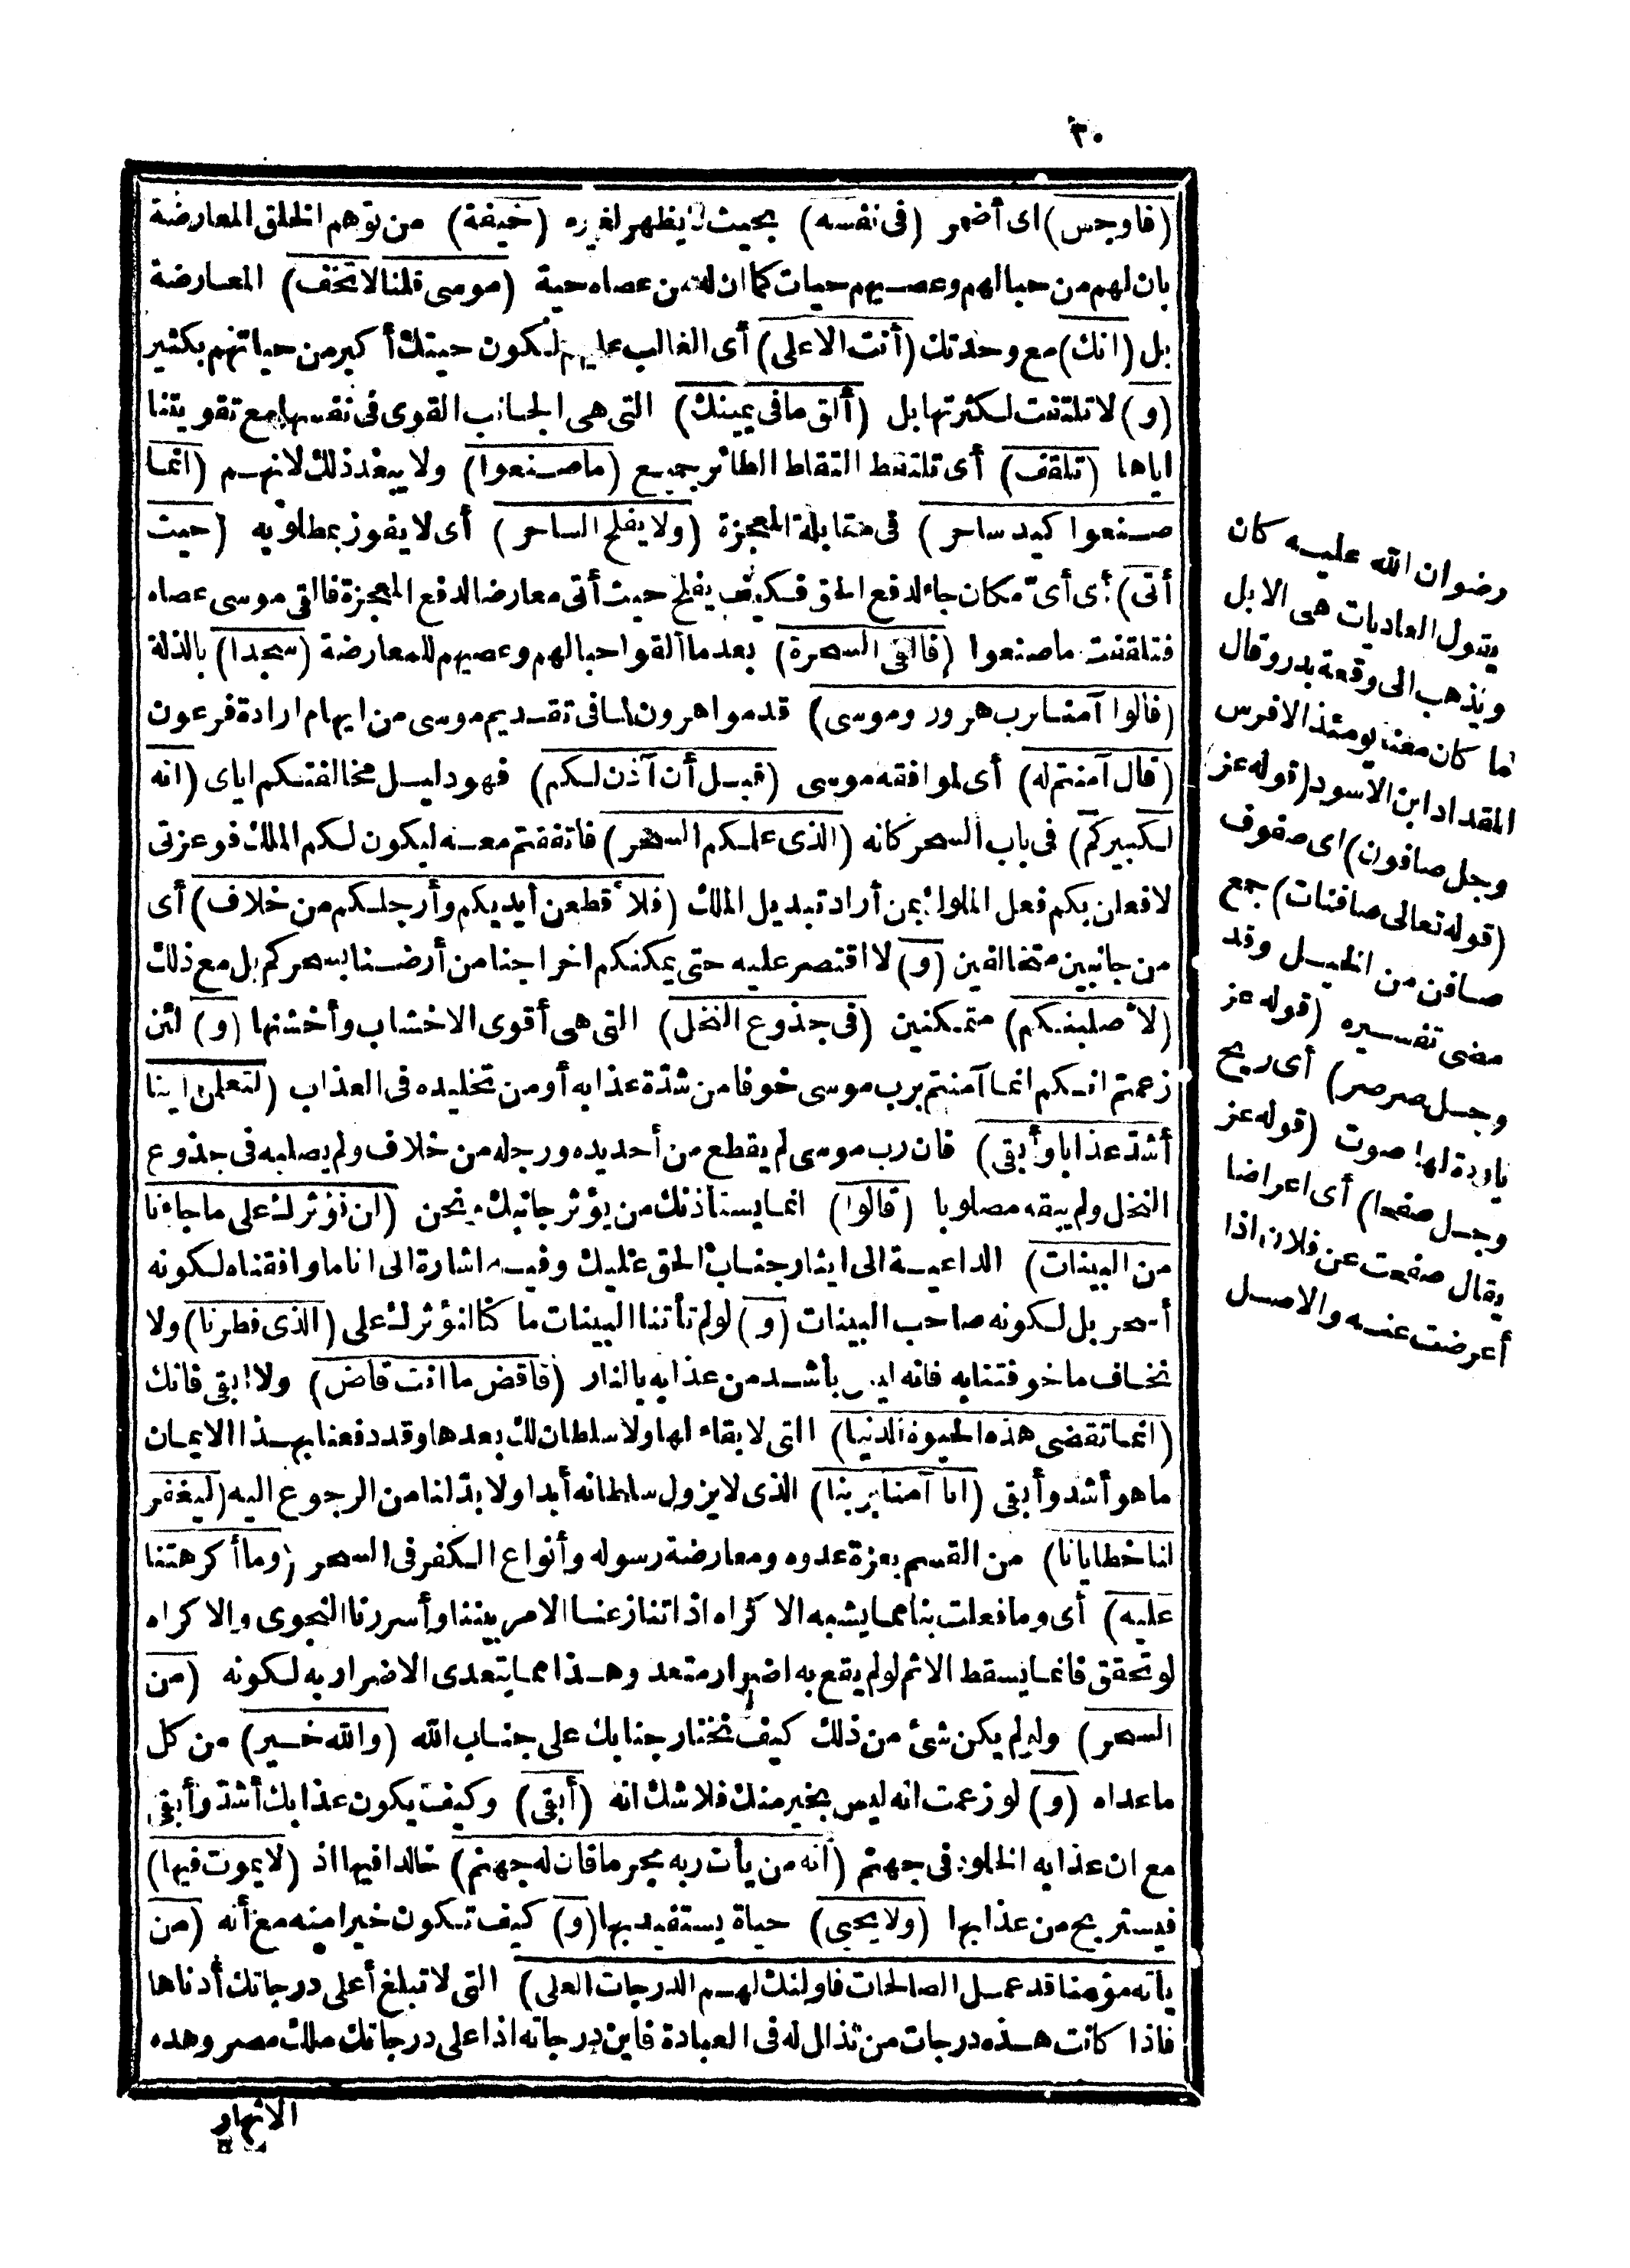 ٣٠
(فاوجس) اى أضمر (فى نفسه) بحيث لا يظهر لغيره (خيفة) من توهم الخلق المعارضة
بان لهم من حبالهم وعصيهم حيات كما ان له من عصاه حية (موسى قلنا لا تخف) المعارضة
بل (انك) مع وحدتك (أنت الاعلى) أى الغالب عليهم لكون حيتك أكبر من حياتهم بكثير
(و) لا تلتفت لكثرتها بل (ألق ما فى يمينك) التى هى الجانب القوى فى نفسها مع تقويتنا
اياها (تلقف) أى تلتقط التقاط الطائر جميع (ما صنعوا) ولا يبعد ذلك لانهم (انما
صنعوا كيد ساحر) فى مقابلة المعجزة (ولا يفلح الساحر) أى لا يفوز بمطلوبه (حيث
أتى) أى أىّ مكان جاء لدفع الحق فكيف يفلح حيث أتى معارضا لدفع المعجزة فالقى موسى عصاه
فتلقفت ما صنعوا (فالقى السحرة) بعد ما ألقوا حبالهم وعصيهم للمعارضة (سجدا) بالذلة
(قالوا آمنا برب هرون وموسى) قدموا هرون لما فى تقديم موسى من ايهام ارادة فرعون
(قال آمنتم له) أى لموافقه موسى (قبل أن آذن لكم) فهو دليل مخالفتكم اياى (انه
لكبيركم) فى باب السحر كانه (الذى علمكم السحر) فاتفقتم معه ليكون لكم الملك فوعزتى
لافعلن بكم فعل الملوك بمن أراد تبديل الملك (فلأقطعن أيديكم وأرجلكم من خلاف) أى
من جانبين متخالفين (و) لا اقتصر عليه حتى يمكنكم اخراجنا من أرضنا بسحركم بل مع ذلك
(لأصلبنكم) متمكنين (فى جذوع النخل) التى هى أقوى الاخشاب وأخشنها (و) لئن
زعمتم انكم انما آمنتم برب موسى خوفا من شدّة عذابه أو من تخليده فى العذاب (لتعلمن اينا
أشدّ عذابا وأبقى) فان رب موسى لم يقطع من أحد يده ورجله من خلاف ولم يصلبه فى جذوع
النخل ولم يبقه مصلوبا (قالوا) انما يستأذنك من يؤثر جانبك ونحن (لن نؤثرك على ما جاءنا
من البينات) الداعية الى ايثار جناب الحق عليك وفيه اشارة الى انا ما وافقناه لكونه
أسحر بل لكونه صاحب البينات (و) لو لم تأتنا البينات ما كنا لنؤثرك على (الذى فطرنا) ولا
نخاف ما خوفتنا به فانه ليس باشد من عذابه بالنار (فاقض ما انت قاض) ولا ابقى فانك
(انما تقضى هذه الحيوة الدنيا) التى لا بقاء لها ولا سلطان لك بعدها وقد دفعنا بهذا الايمان
ما هو أشد وأبقى (انا آمنا بربنا) الذى لا يزول سلطانه أبدا ولا بدّ لنا من الرجوع اليه (ليغفر
لنا خطايانا) من القسم بعزة عدوه ومعارضة رسوله وأنواع الكفر فى السحر (وما أكرهتنا
عليه) أى وما فعلت بنا مما يشبه الاكراه اذ تنازعنا الامر بيننا وأسررنا النجوى والاكراه
لو تحقق فانما يسقط الاثم لو لم يقع به اضرار متعد وهذا مما يتعدى الاضرار به لكونه (من
السحر) ولو لم يكن شئ من ذلك كيف نختار جنابك على جناب الله (والله خير) من كل
ما عداه (و) لو زعمت انه ليس بخير منك فلا شك انه (أبقى) وكيف يكون عذابك أشدّ وأبقى
مع ان عذابه الخلود فى جهنم (انه من يأت ربه مجرما فان له جهنم) خالدا فيها اذ (لا يموت فيها)
فيستريح من عذابها (ولا يحيى) حياة يستفيد بها (و) كيف تكون خيرا منه مع أنه (من
يأته مؤمنا قد عمل الصالحات فاولئك لهم الدرجات العلى) التى لا تبلغ أعلى درجاتك أدناها
فاذا كانت هذه درجات من تذلل له فى العبادة فاين درجاته اذ أعلى درجاتك ملك مصر وهذه
الانهار
رضوان الله عليه كان
يقول العاديات هى الابل
ويذهب الى وقعة بدر وقال
ما كان معنا يومئذ الا فرس
المقداد ابن الاسود (قوله عز
وجل صافون) اى صفوف
(قوله تعالى صافنات) جمع
صافن من الخيل وقد
مضى تفسيره (قوله عز
وجل صرصر) أى ريح
باردة لها صوت (قوله عز
وجل صفحا) أى اعراضا
يقال صفحت عن فلان اذا
أعرضت عنه والاصل